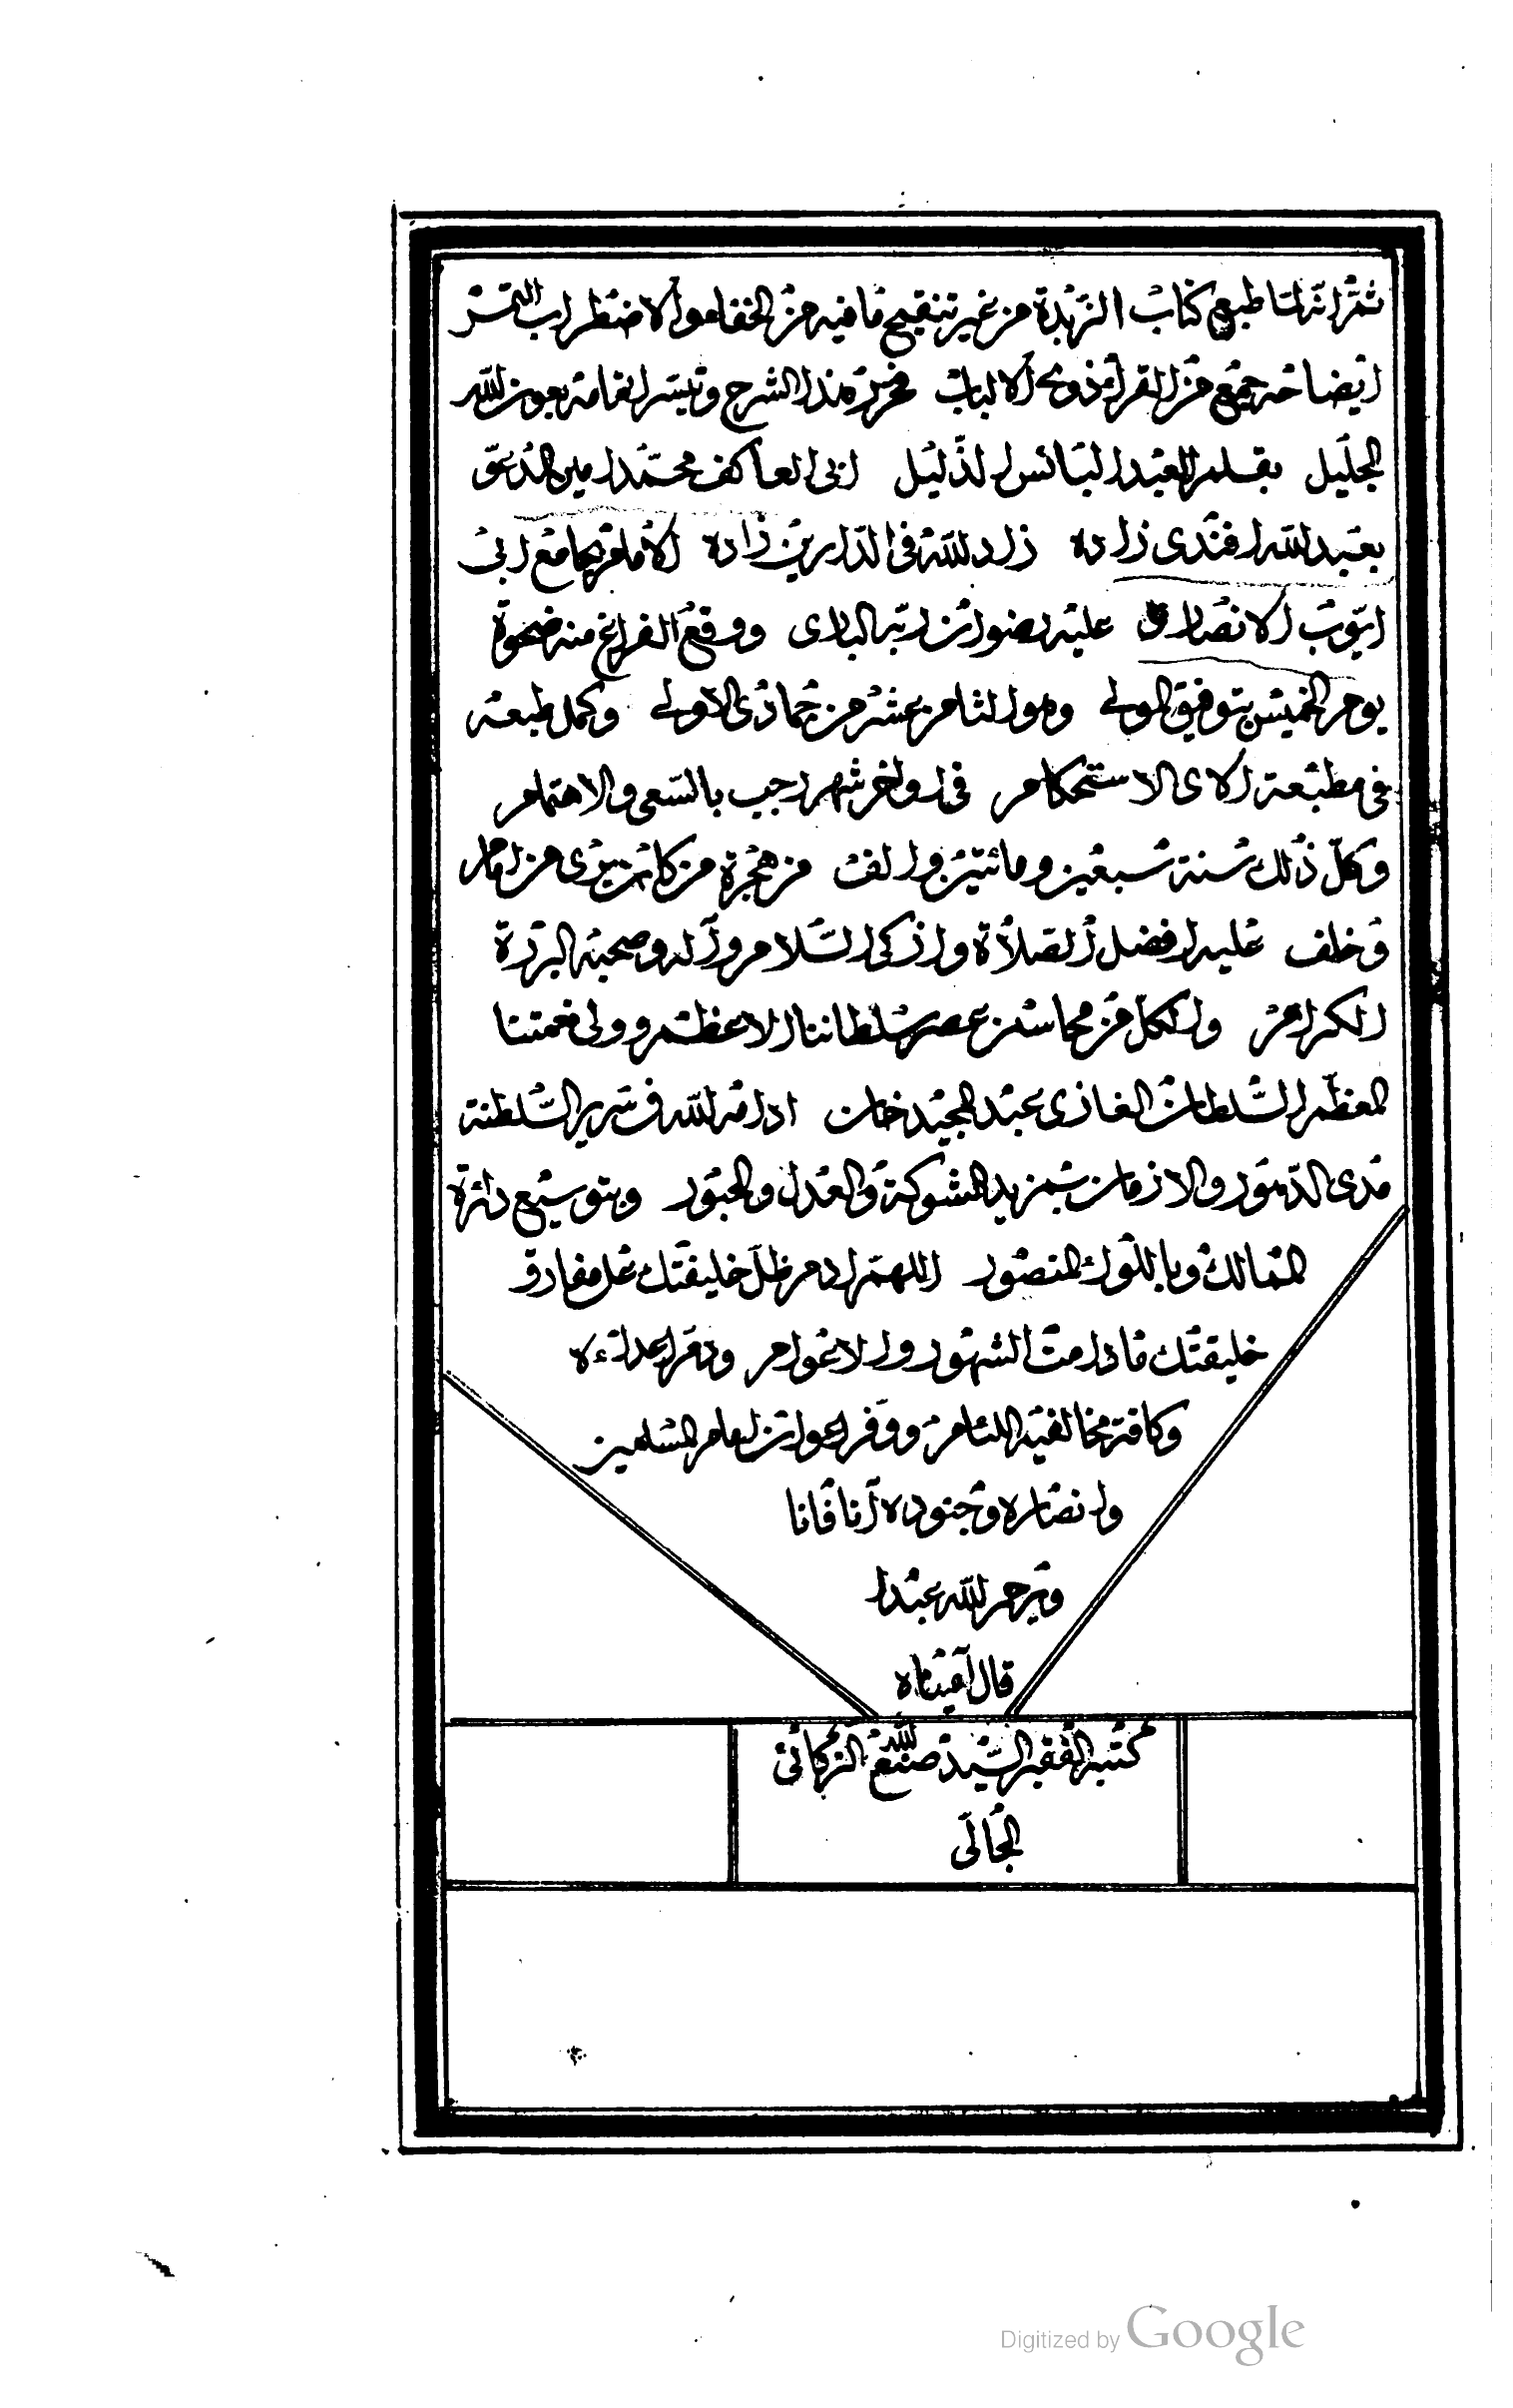 ثم انه لما طبع كتاب الزبدة من غير تنقيح ما فيه من الخفاء والاضطراب التمس
ايضاحه جمع من القراء ذوى الالباب فحرر هذا الشرح وتيسر اتمامه بعون الله
الجليل بقلم العبد البائس الذليل ابى العاكف محمد امين المدعو
بعبد الله افندى زاده زاد الله فى الدارين زاده الامام بجامع ابى
ايوب الانصارى عليه رضوان ربه البارى ووقع الفراغ منه ضحوة
يوم الخميس بتوفيق المولى وهو الثامن عشر من جمادى الاولى وكمل طبعه
فى مطبعة الاى الاستحكام فى اواخر شهر رجب بالسعى والاهتمام
وكل ذلك سنة سبعين ومائتين والف من هجرة من كان يرى من امام
وخلف عليه افضل الصلاة وازكى السلام وآله وصحبه البررة
الكرام والكل من محاسن عصر سلطاننا الاعظم وولى نعمتنا
المعظم السلطان الغازى عبد المجيد خان ادامه الله فى سرير السلطنة
مدى الدهور والازمان بمزيد الشوكة والعدل والحبور وبتوسيع دائرة
الممالك وباللواء المنصور اللهم ادم ظل خليفتك على مفارق
خليقتك ما دامت الشهور والاعوام ودمر اعداءه
وكافة مخالفيه اللئام ووفر اعوانه لعام المسلمين
وانصاره وجنوده آنا فآنا
ويرحم الله عبدا
قال آميناه
كتبه الفقير السيد صنع الله
الجمالى
Digitized by Google